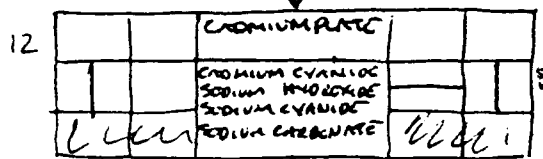 12
CADMIUM PLATE
CADMIUM CYANIDE
SODIUM HYDROXIDE
SODIUM CYANIDE
SODIUM CARBONATE